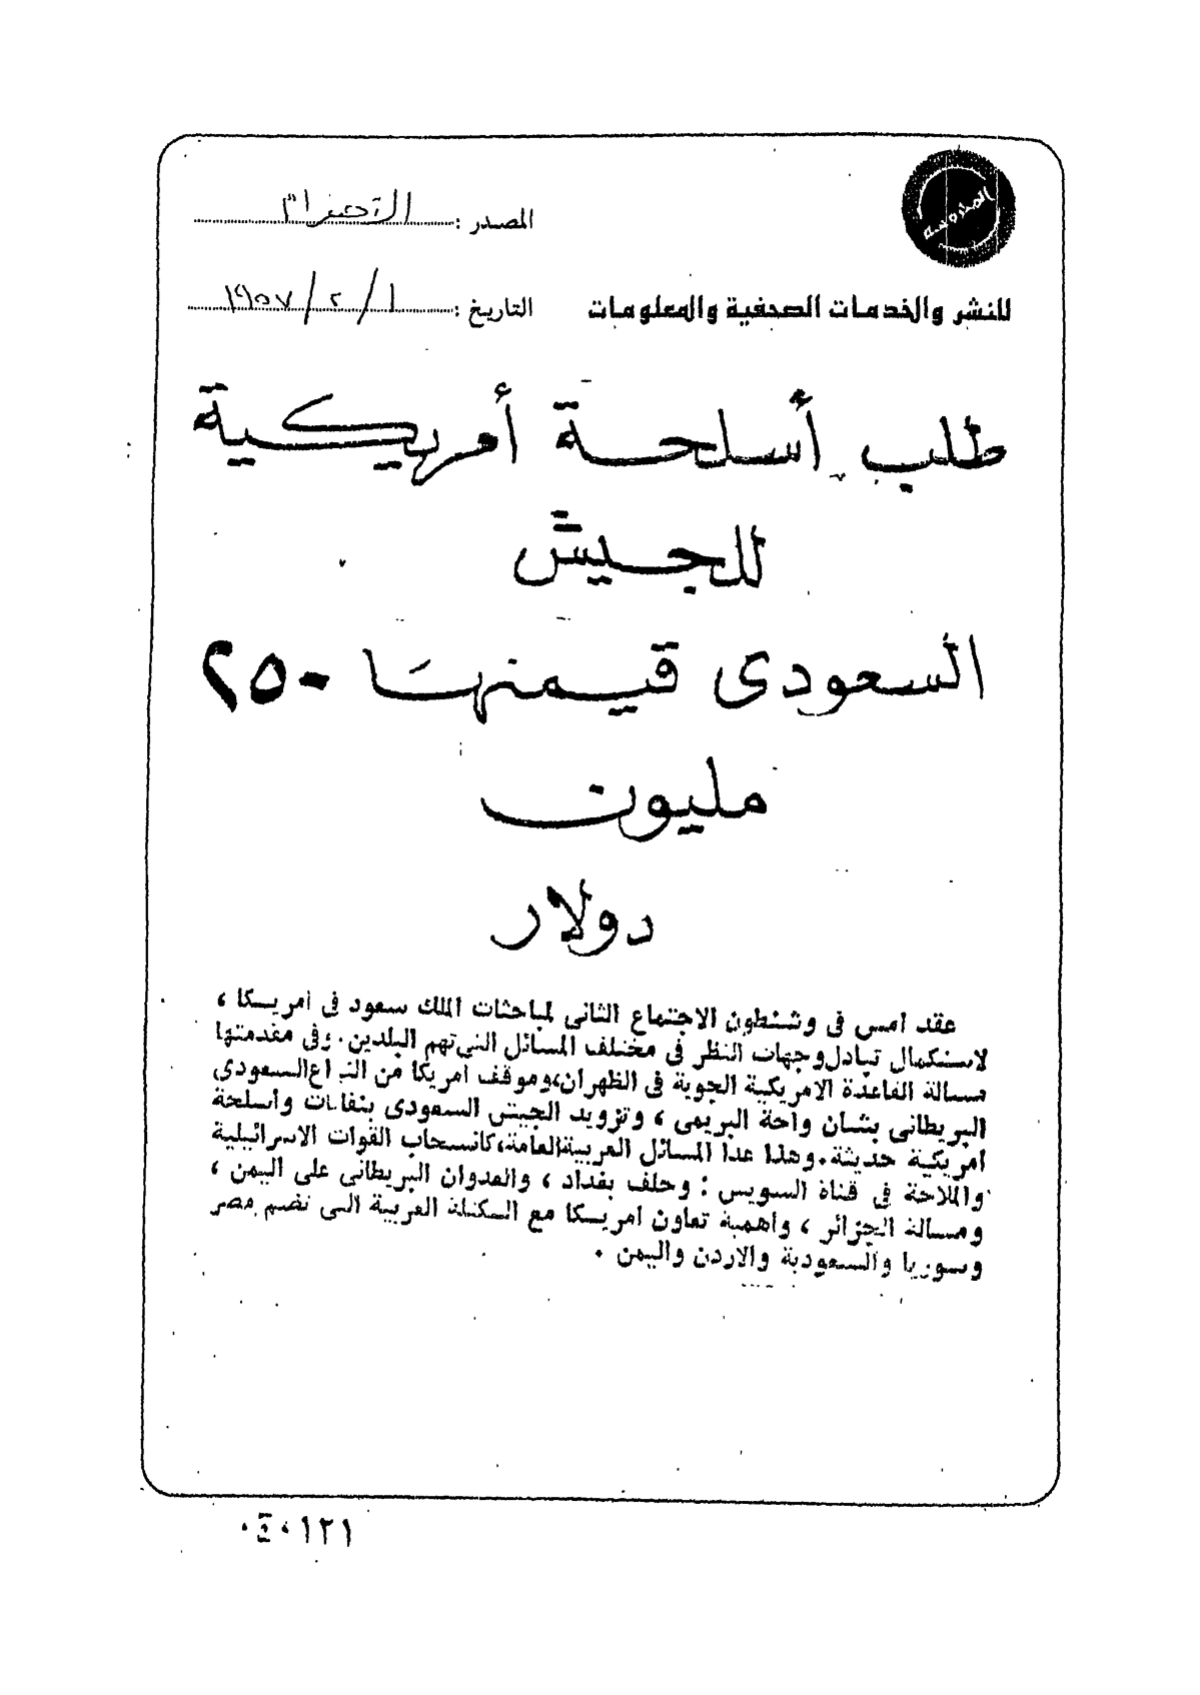 المحروسة
المصدر : الأهرام
للنشر والخدمات الصحفية والمعلومات
التاريخ : ١/٢/١٩٥٧
طلب أسلحة أمريكية
للجيش
السعودى قيمتها ٢٥٠
مليون
دولار
عقد امس فى وشنطون الاجتماع الثانى لمباحثات الملك سعود فى امريكا ،
لاستكمال تبادل وجهات النظر فى مختلف المسائل التى تهم البلدين . وفى مقدمتها
مسالة القاعدة الامريكية الجوية فى الظهران، وموقف امريكا من النزاع السعودى
البريطانى بشان واحة البريمى ، وتزويد الجيش السعودى بنفاثات وأسلحة
امريكية حديثة . وهذا عدا المسائل العربية العامة، كانسحاب القوات الاسرائيلية
والملاحة فى قناة السويس : وحلف بغداد ، والعدوان البريطانى على اليمن ،
ومسالة الجزائر ، واهمية تعاون امريكا مع الكتلة العربية التى تضم مصر
وسوريا والسعودية والاردن واليمن .